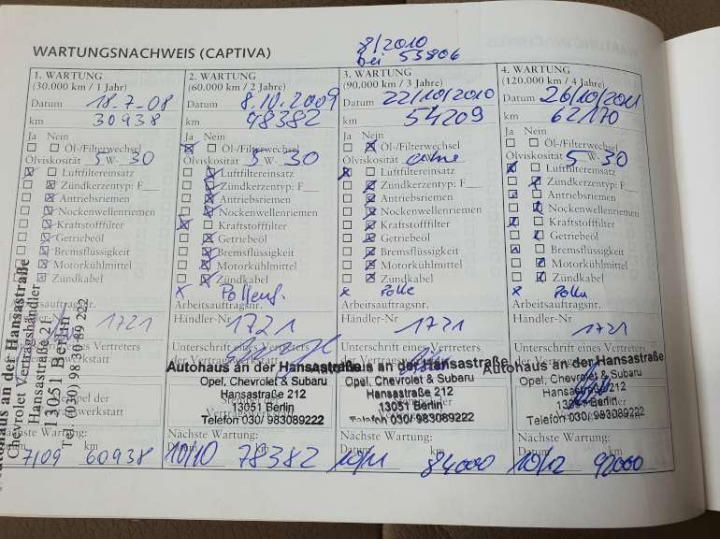 WARTUNGSNACHWEIS (CAPTIVA)
8/2010
bei 53806
1. WARTUNG
(30.000 km / 1 Jahr)
Datum 18.7-08
km 30938
Ja Nein
Öl-/Filterwechsel
Ölviskosität 5 W- 30
Luftfiltereinsatz
Zündkerzentyp: F
Antriebsriemen
Nockenwellenriemen
Kraftstofffilter
Getriebeöl
Bremsflüssigkeit
Motorkühlmittel
Zündkabel
1721
Nächste Wartung:
7/09 km 60938
Autohaus an der Hansastraße
Chevrolet Vertragshändler
Hansastraße 212
13051 Berlin
Tel. (030) 98 30 89 222
2. WARTUNG
(60.000 km / 2 Jahre)
Datum 8.10.2009
km 48382
Ja Nein
Öl-/Filterwechsel
Ölviskosität 5 W- 30
Luftfiltereinsatz
Zündkerzentyp: F
Antriebsriemen
Nockenwellenriemen
Kraftstofffilter
Getriebeöl
Bremsflüssigkeit
Motorkühlmittel
Zündkabel
Pollenf.
Arbeitsauftragsnr.
Händler-Nr 1721
Unterschrift eines Vertreters
der Vertragswerkstatt
Autohaus an der Hansastraße
Opel, Chevrolet & Subaru
Hansastraße 212
13051 Berlin
Telefon 030/ 983089222
Nächste Wartung:
10/10 km 78382
3. WARTUNG
(90.000 km / 3 Jahre)
Datum 22/10/2010
km 54209
Ja Nein
Öl-/Filterwechsel
Ölviskosität ohne
Luftfiltereinsatz
Zündkerzentyp: F
Antriebsriemen
Nockenwellenriemen
Kraftstofffilter
Getriebeöl
Bremsflüssigkeit
Motorkühlmittel
Zündkabel
Polle
Arbeitsauftragsnr.
Händler-Nr 1721
Unterschrift eines Vertreters
der Vertragswerkstatt
Autohaus an der Hansastraße
Opel, Chevrolet & Subaru
Hansastraße 212
13051 Berlin
Telefon 030/ 983089222
Nächste Wartung:
10/11 km 84000
4. WARTUNG
(120.000 km / 4 Jahre)
Datum 26/10/2011
km 62170
Ja Nein
Öl-/Filterwechsel
Ölviskosität 5 W- 30
Luftfiltereinsatz
Zündkerzentyp: F
Antriebsriemen
Nockenwellenriemen
Kraftstofffilter
Getriebeöl
Bremsflüssigkeit
Motorkühlmittel
Zündkabel
Polle
Arbeitsauftragsnr.
Händler-Nr 1721
Unterschrift eines Vertreters
der Vertragswerkstatt
Autohaus an der Hansastraße
Opel, Chevrolet & Subaru
Hansastraße 212
13051 Berlin
Telefon 030/ 983089222
Nächste Wartung:
10/12 km 92000